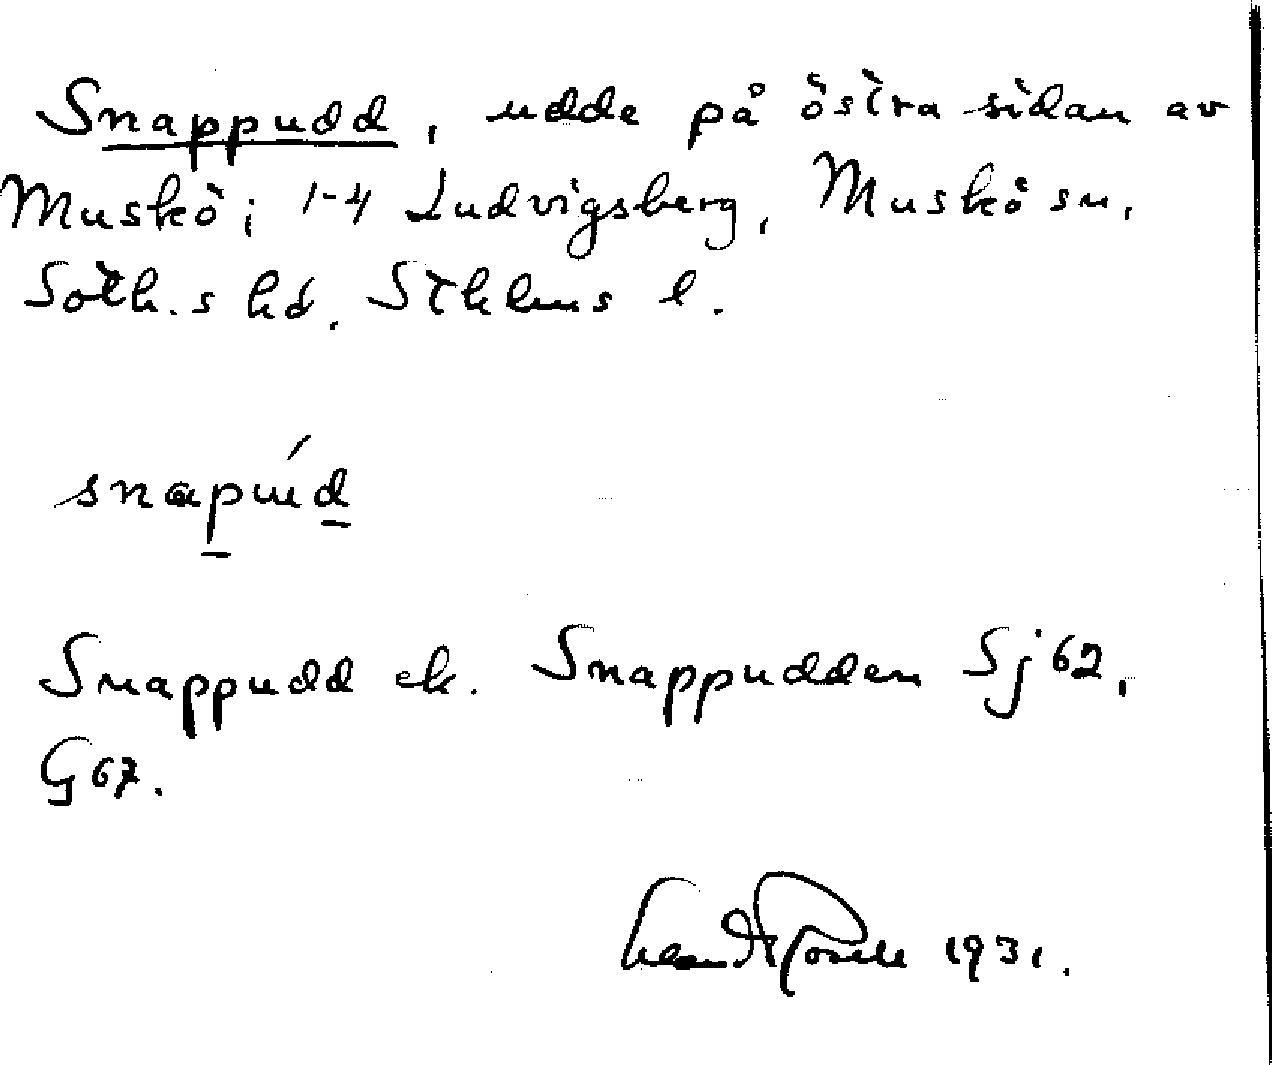 Snappudd, udde på östra sidan av
Muskö; 1-4 Ludvigsberg, Muskö sn,
Soth.s hd, Sthlms l.
snapud
Snappudd ek. Snappudden Sj 62,
G 67.
1931.